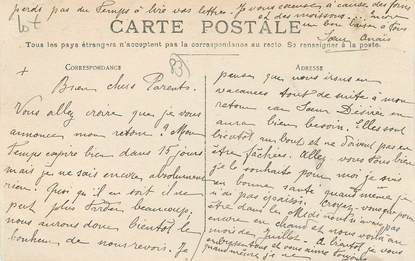 perds pas du temps à lire vos lettres. Je vous à cause des foins
et des moissons.
un bon baiser à tous
Sœur Anaïs
CARTE POSTALE
Tous les pays étrangers n'acceptent pas la correspondance au recto. Se renseigner à la poste.
CORRESPONDANCE
ADRESSE
Bien chers Parents.
Vous allez croire que je vous
annonce mon retour ? Mon
Temps expire bien dans 15 jours
mais je ne sais encore absolument
rien. Quoi qu'il en soit il ne
peut plus tarder beaucoup,
nous aurons donc bientôt le
bonheur de nous revoir. Je
pense que nous irons en
vacances tout de suite à mon
retour car Sœur Désirée en
aura bien besoin. Elles sont
bientôt au bout et ne doivent pas en
être fâchées. Allez vous tous bien
je le souhaite pour moi je suis
en bonne santé quand même je
n'ai pas Croyez vous que pour
être dans le Midi nous n'avons pas
encore eu chaud et nous voilà au
mois de Juillet. A bientôt je vous
embrasse tous et vous aime toujours
quand même je ne